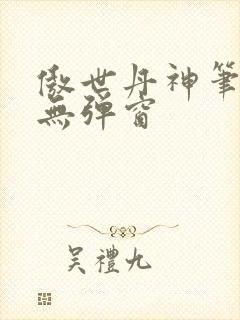 傲世丹神筆
無彈窗
吳禮九